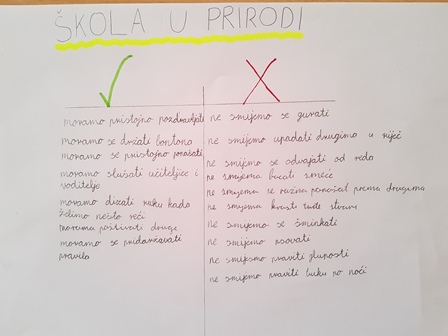 ŠKOLA U PRIRODI
moramo pristojno pozdravljati
moramo se držati bontona
moramo se pristojno ponašati
moramo slušati učiteljice i
voditelje
moramo dizati ruku kada
želimo nešto reći
moramo poštivati druge
moramo se pridržavati
pravila
ne smijemo se gurati
ne smijemo upadati drugima u riječ
ne smijemo se odvajati od reda
ne smijemo bacati smeće
ne smijemo se ružno ponašat prema drugima
ne smijemo krasti tuđe stvari
ne smijemo se šminkati
ne smijemo psovati
ne smijemo praviti gluposti
ne smijemo praviti buku po noći